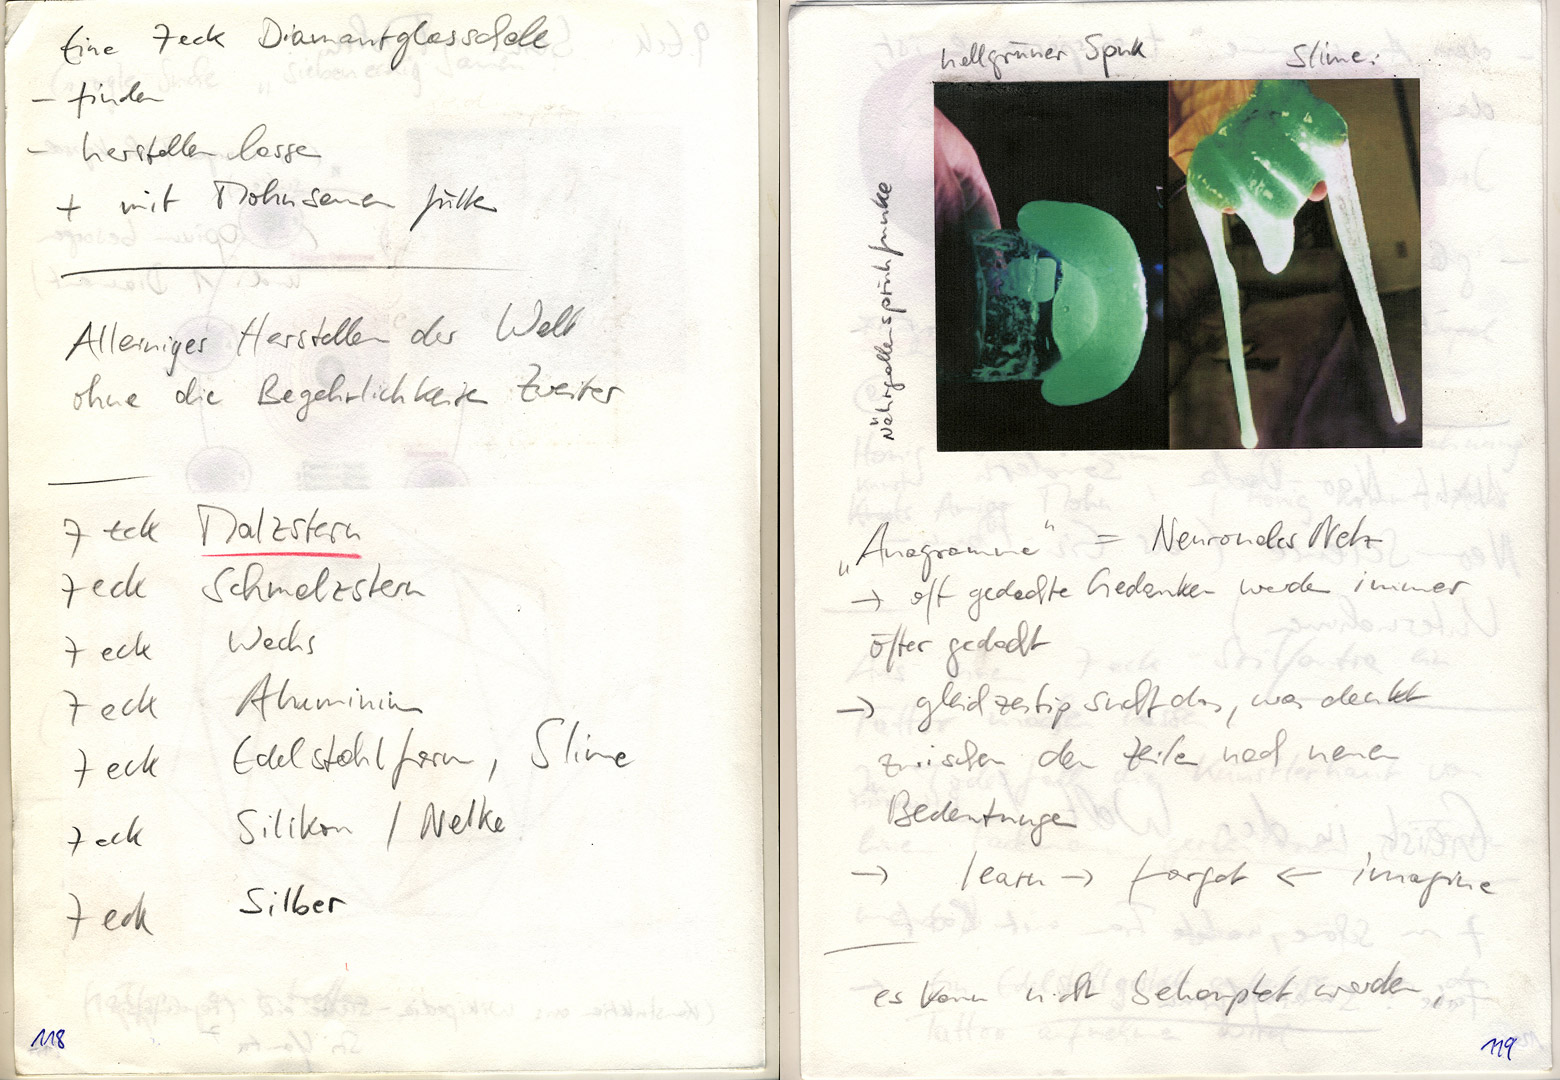 Eine 7eck Diamantglasschale
– finden
– herstellen lassen
+ mit Mohnsamen füllen
Alleiniges Herstellen der Welt
ohne die Begehrlichkeiten Zweiter
7 eck Malzstern
7 eck Schmelzstern
7 eck Wachs
7 eck Aluminium
7 eck Edelstahlform, Slime
7 eck Silikon / Nelke
7 eck Silber
118
hellgrüner Spuk Slime:
Nährgallensprühfunke
„Anagramme“ = Neuronales Netz
→ oft gedachte Gedanken werden immer
öfter gedacht
→ gleichzeitig sucht das, was denkt
zwischen den Zeilen nach neuen
Bedeutungen
→ learn → forget ← imagine
es kann nicht behauptet werden,
119